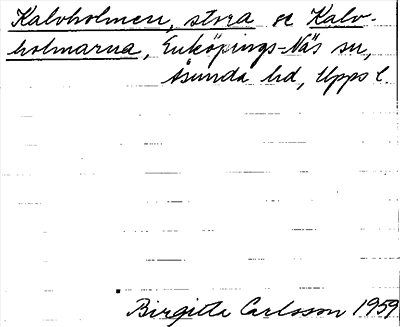 Kalvholmen, stora se Kalv-
holmarna, Enköpings-Näs sn,
Åsunda hd, Upps l.
Birgitta Carlsson 1959